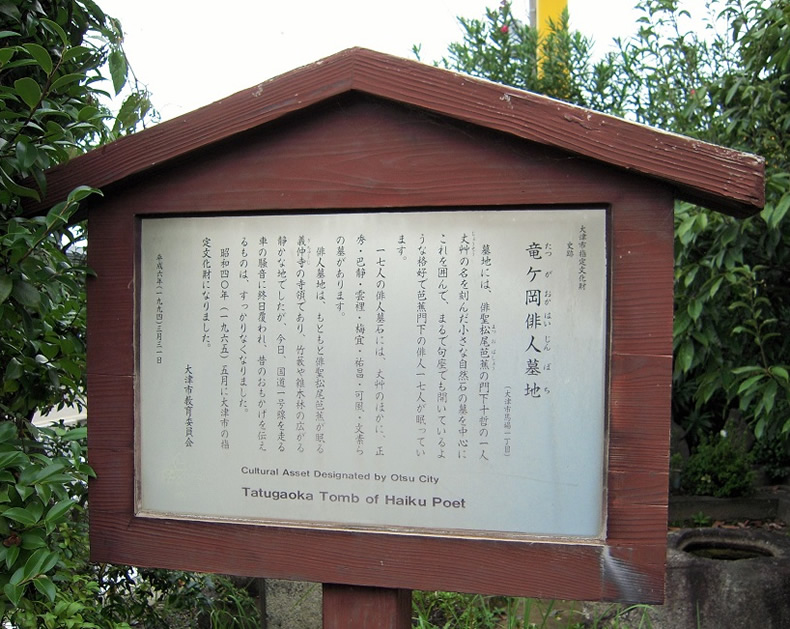 大津市指定文化財
史跡
たつがおかはいじんぼち
竜ケ岡俳人墓地
(大津市馬場一丁目)
墓地には、俳聖松尾芭蕉の門下十哲の一人
丈艸の名を刻んだ小さな自然石の墓を中心に
これを囲んで、まるで句座でも開いているよ
うな格好で芭蕉門下の俳人一七人が眠ってい
ます。
一七人の俳人墓石には、丈艸のほかに、正
秀・巴静・雲裡・梅宜・祐昌・可風・文素ら
の墓があります。
俳人墓地は、もともと俳聖松尾芭蕉が眠る
義仲寺の寺領であり、竹薮や雑木林の広がる
静かな地でしたが、今日、国道一号線を走る
車の騒音に終日覆われ、昔のおもかげを伝え
るものは、すっかりなくなりました。
昭和四〇年(一九六五)五月に大津市の指
定文化財になりました。
大津市教育委員会
平成六年(一九九四)三月三一日
Cultural Asset Designated by Otsu City
Tatugaoka Tomb of Haiku Poet